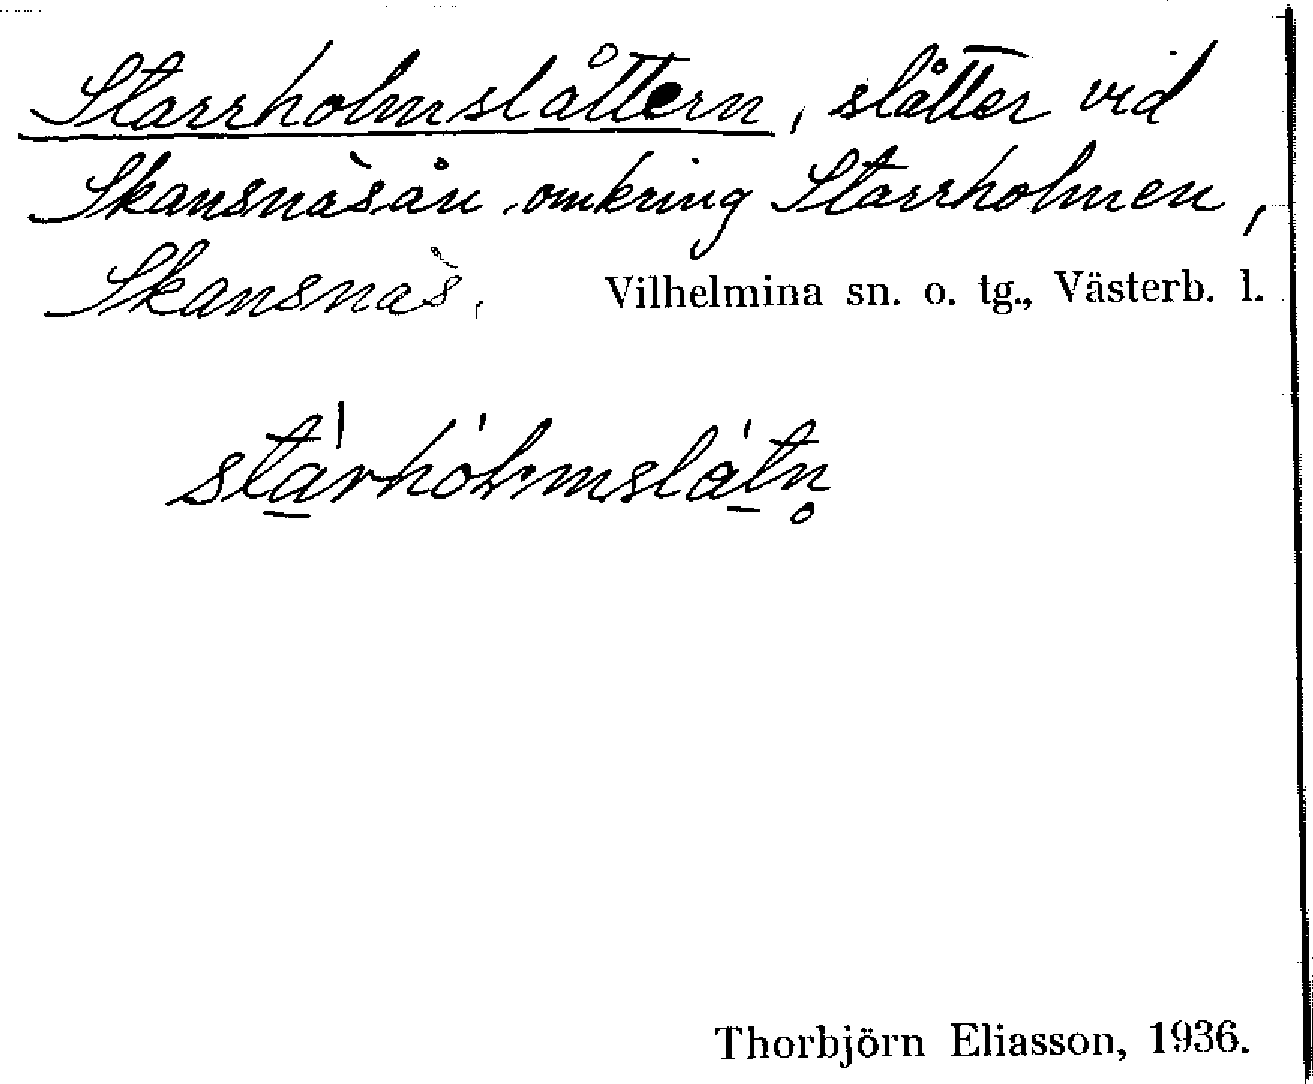 Starrholmslåttern, slåtter vid
Skansnäsån omkring Starrholmen,
Skansnäs, Vilhelmina sn. o. tg., Västerb. l.
sta̱rholmsla̱tn̥
Thorbjörn Eliasson, 1936.